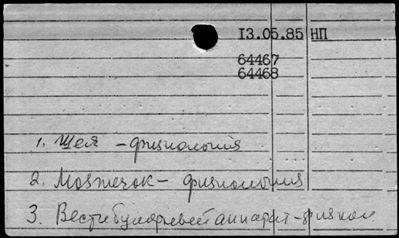 13.05.85 НП
64467
64468
1. Шея - физиология
2. Мозжечок - физиология
3. Вестибулярный аппарат - физиол